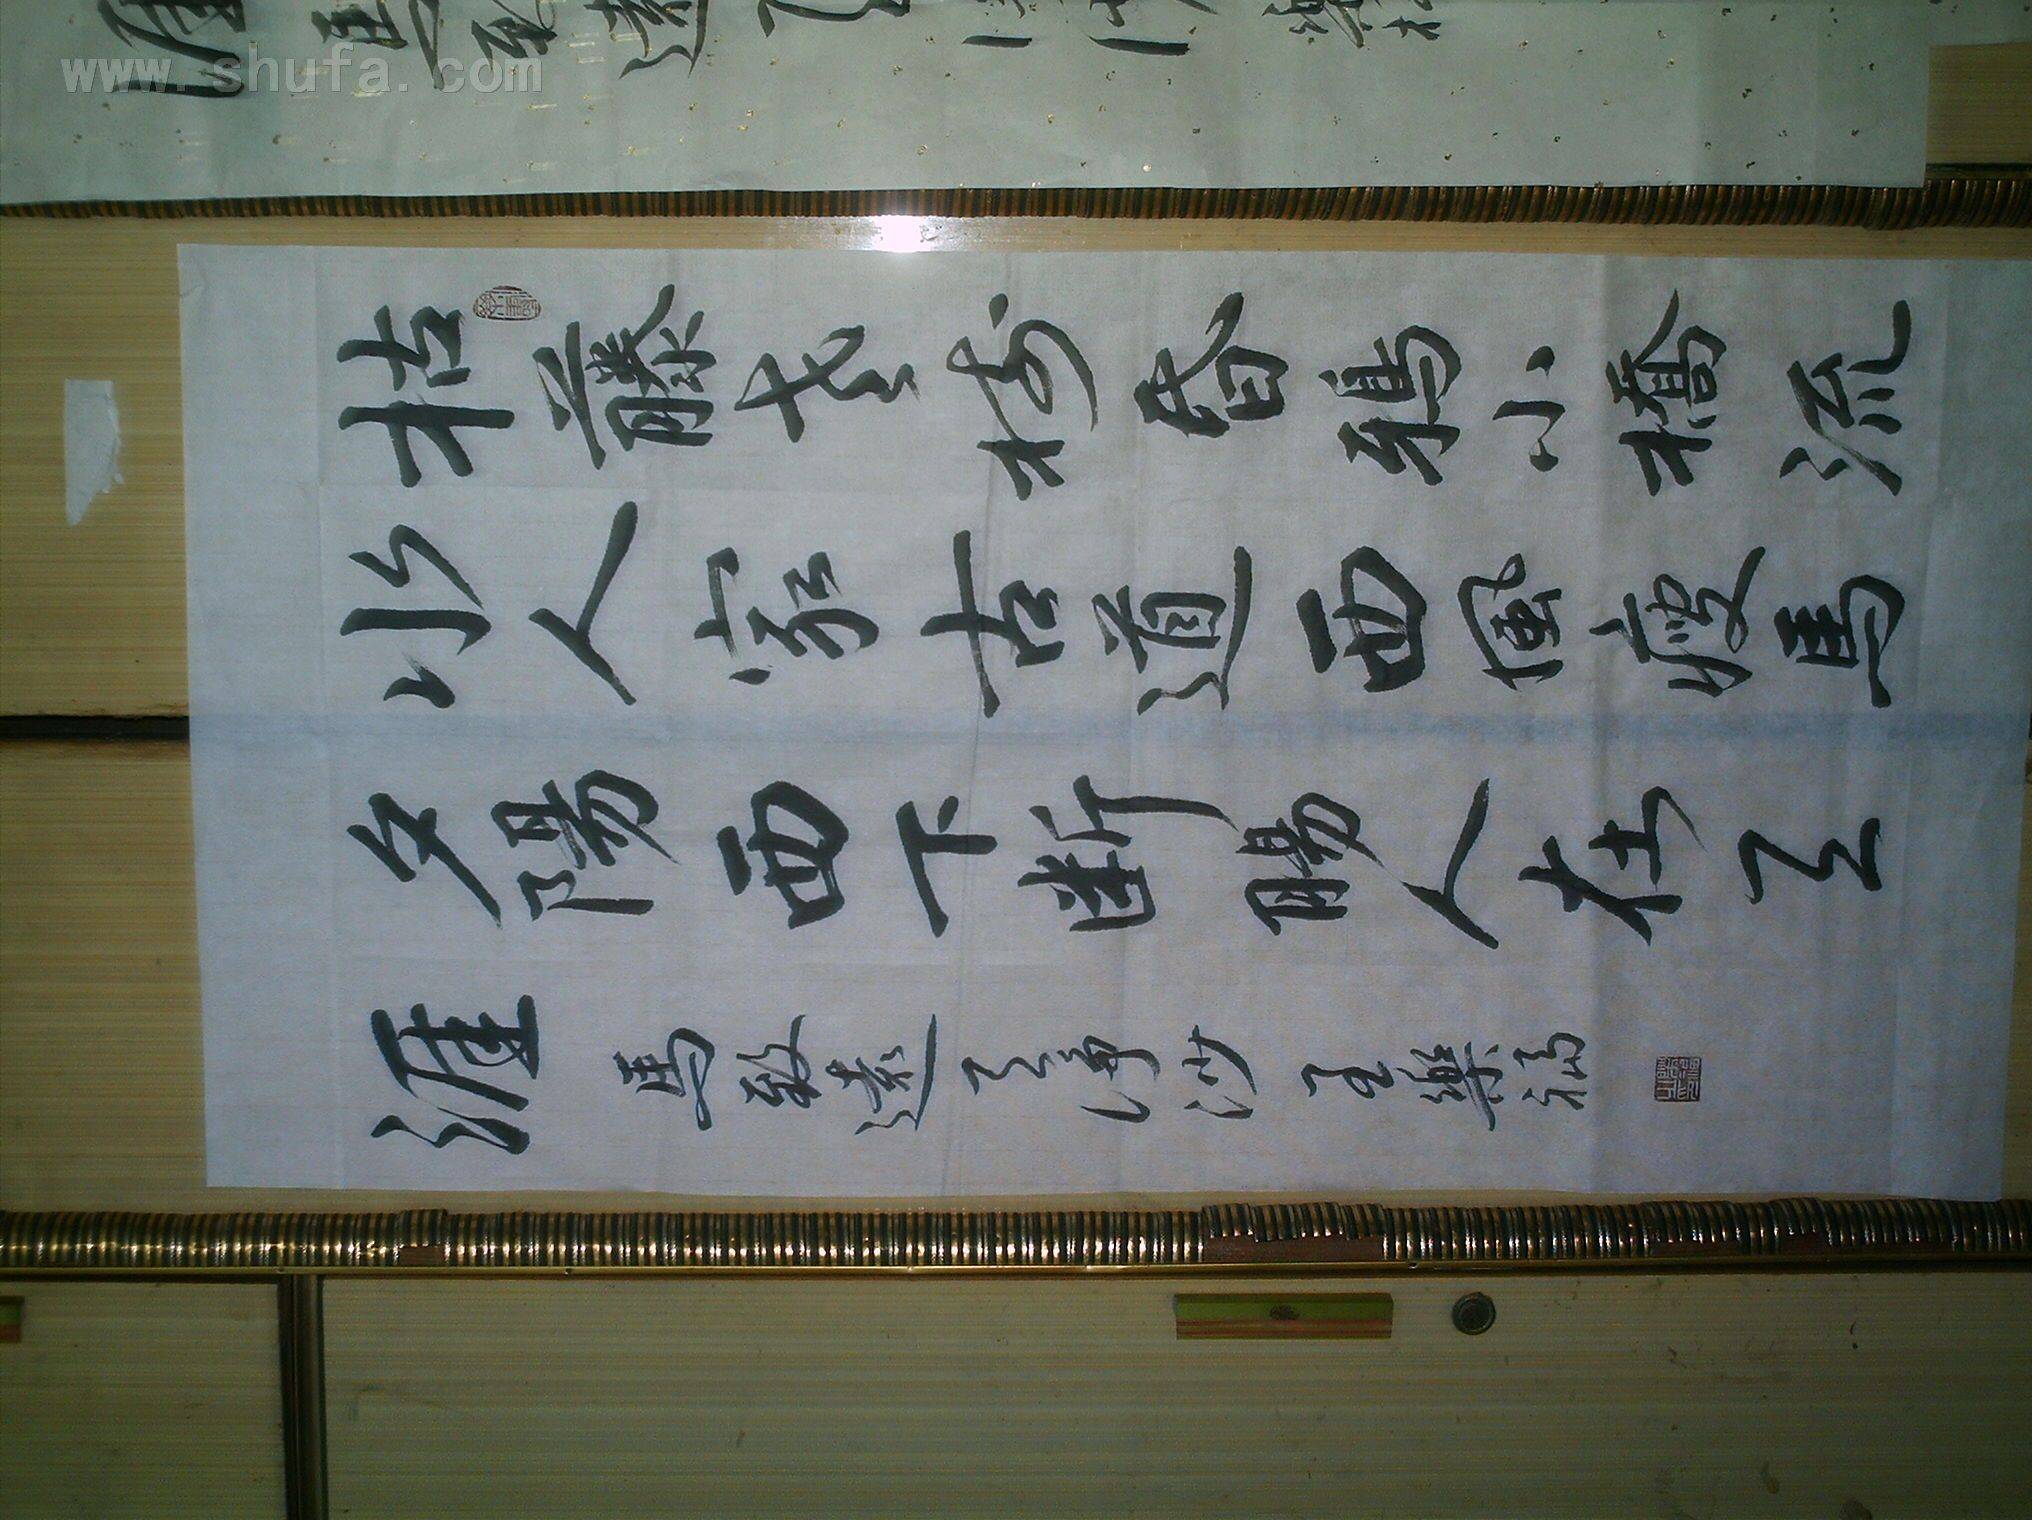 枯藤老樹昏鴉小橋流
水人家古道西風瘦馬
夕陽西下断腸人在天
涯 馬致遠天净沙 王樂福
www.shufa.com